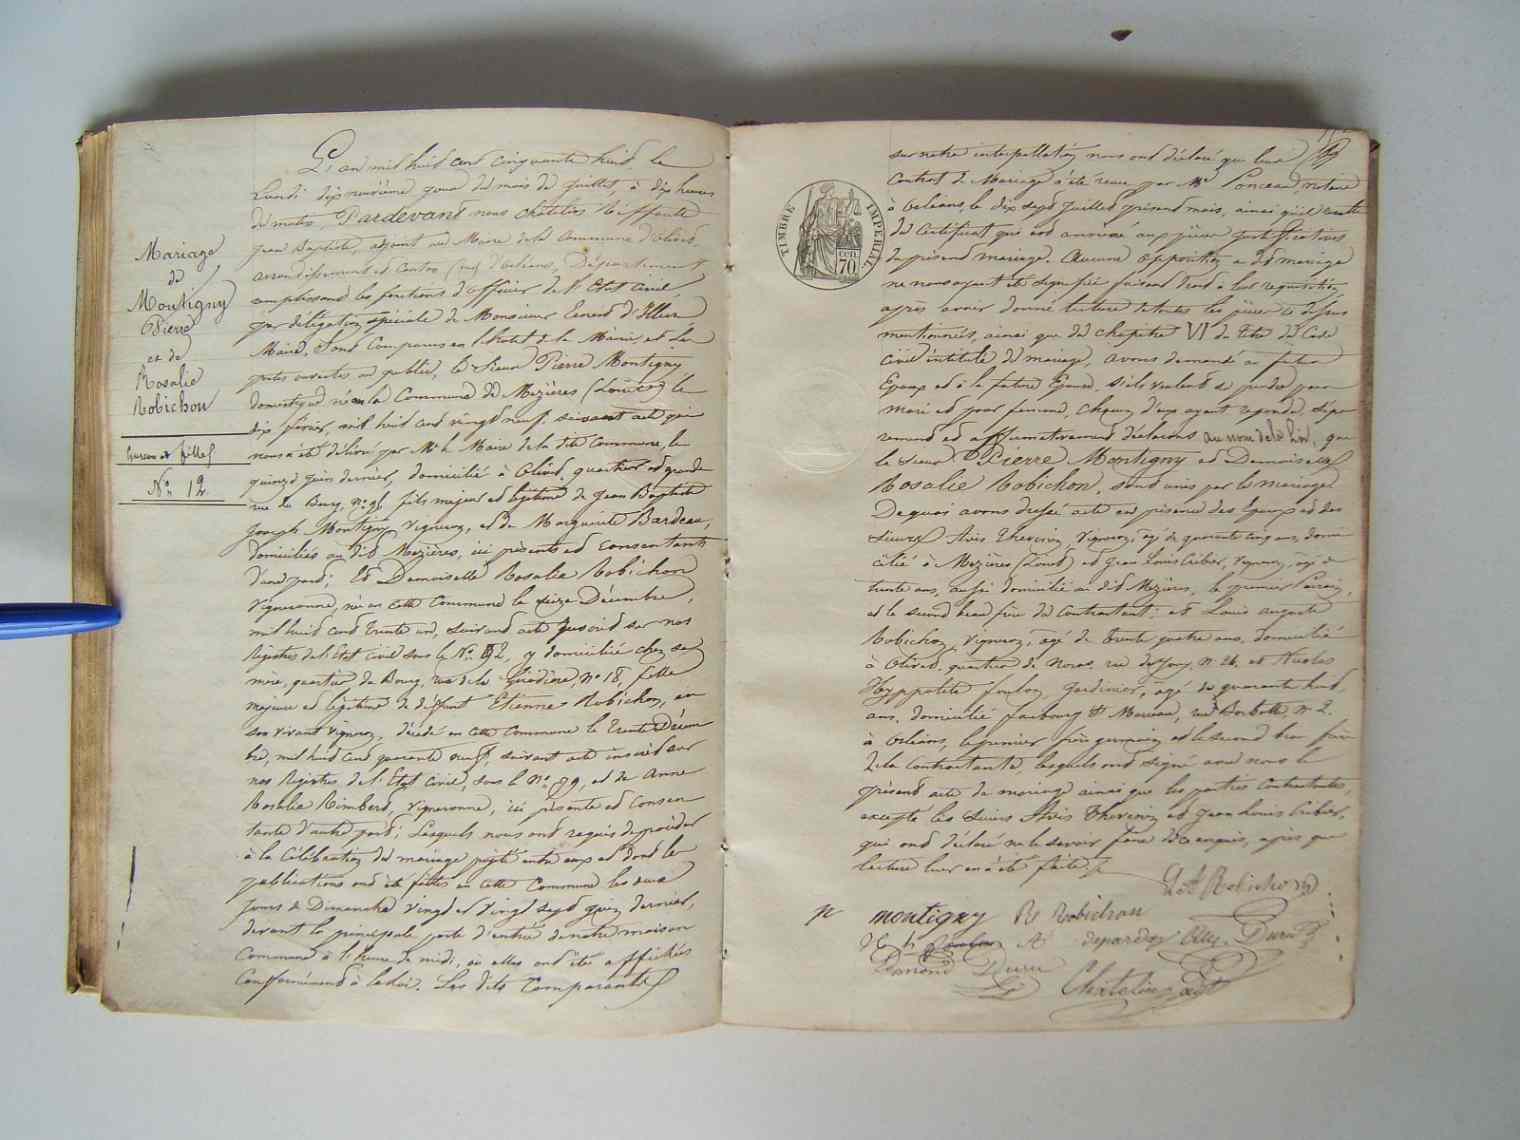 Mariage
de
Montigny
Pierre
et de
Rosalie
Robichon
Garcon et fille
No. 12
L'an mil huit cent cinquante huit le
Lundi dix neuvième jour du mois de Juillet, à dix heures
du matin, Pardevant nous Châtelin
Jean Baptiste, adjoint au Maire de la Commune d'Olivet,
arrondissement et Canton d'Orléans, Département
remplissant les fonctions d'Officier de l'Etat Civil
par délégation spéciale de Monsieur d'Illiers
Maire, Sont Comparus en l'hotel de la Mairie et les
portes ouvertes au public, le Sieur Pierre Montigny
domestique né en la Commune de Mezières (Loiret) le
dix février, mil huit cent vingt neuf, suivant acte qui
nous a été délivré par Mr. le Maire de la dte Commune, le
quinze Juin dernier, domicilié à Olivet, quartier et grande
rue du Bourg, no. 96, fils majeur et légitime de Jean Baptiste
Joseph Montigny Vigneron, et de Marguerite Bardeau,
domiciliés au dit Mezières, ici présents et consentants
d'une part; Et Demoiselle Rosalie Robichon
Vigneronne, née en cette Commune le seize Décembre,
mil huit cent trente un, suivant acte inscrit sur nos
Registres de l'Etat Civil sous le No. 192, y domiciliée chez sa
mère, quartier du Bourg, rue de la No. 18, fille
majeure et légitime de déffunt Etienne Robichon, en
son vivant vigneron, décédé en cette Commune le trente Décem
bre, mil huit cent quarante neuf, suivant acte inscrit sur
nos Registres de l'Etat Civil, sous le No. 89, et de Anne
Rosalie Rimbert, Vigneronne, ici présente et consen
tante d'autre part; Lesquels nous ont requis de procéder
à la Célébration du mariage projeté entre eux et dont les
publications ont été faites en cette Commune les deux
Jours de Dimanche vingt et vingt sept Juin dernier,
devant la principale porte d'entrée de notre maison
Commune à l'heure de midi, où elles ont été affichées
Conformément à la loi. Les dits Comparants
TIMBRE IMPERIAL
CEN
70
sur notre interpellation nous ont déclaré que leur
Contrat de Mariage a été reçu par Me Ponceau, notaire
à Orléans, le dix sept Juillet présent mois, ainsi qu'il résulte
du Certificat qui est annexé aux pièces justificatives
du présent mariage. Aucune opposition au dit mariage
ne nous ayant été signifiée faisant droit à leur requisition
après avoir donné lecture de toutes les pièces ci dessus
mentionnées, ainsi que du chapitre VI du titre du Code
Civil intitulé du mariage, avons demandé au futur
Epoux et à la future Epouse s'ils veulent se prendre pour
mari et pour femme, chacun d'eux ayant répondu sépa
rement et affirmativement déclarons au nom de la loi, que
le sieur Pierre Montigny et Demoiselle
Rosalie Robichon, sont unis par le mariage
De quoi avons dressé acte en présence des Epoux et des
sieurs Avis Thevenon Vigneron, agé de quarante cinq ans, domi
cilié à Mezières (Loiret) et Jean Louis Criber, Vigneron, agé de
trente ans, aussi domicilié au dit Mezières, le premier Parain,
et le second beau frère du Contractant; et Louis Auguste
Robichon, Vigneron, agé de trente quatre ans, domicilié
à Olivet, quartier du rue de No. 26, et Nicolas
Hyppolite Foulon, Jardinier, agé de quarante huit
ans, domicilié faubourg St. Marceau, rue No. 2.
à Orléans, le premier frère germain et le second beau frère
de la contractante, lesquels ont signé avec nous le
présent acte de mariage ainsi que les parties Contractantes,
excepté les Sieurs Avis Thevenon et Jean Louis Criber,
qui ont déclaré ne le savoir faire de ce enquis, après que
lecture leur en a été faite.
Robichon
p montigny R Robichon
Duru
Duru
Châtelin adjt